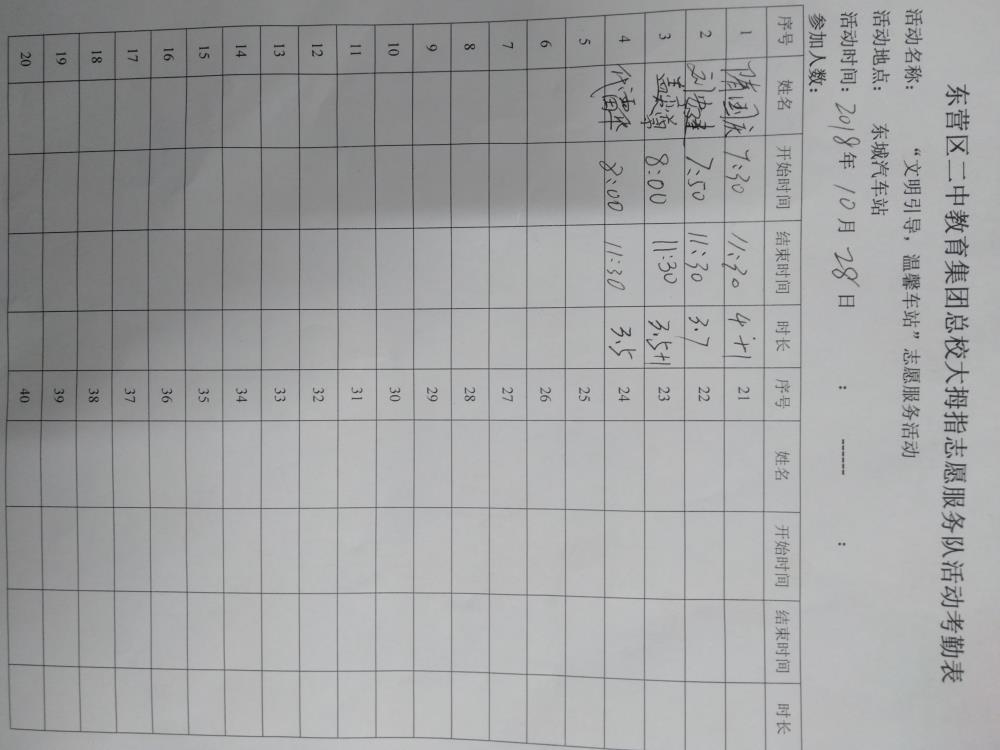 东营区二中教育集团总校大拇指志愿服务队活动考勤表
活动名称： “文明引导，温馨车站”志愿服务活动
活动地点： 东城汽车站
活动时间：2018年 10月 28日 ： ------ ：
参加人数：
序号 姓名 开始时间 结束时间 时长 序号 姓名 开始时间 结束时间 时长
1 国庆 7:30 11:30 4+1 21
2 7:50 11:30 3.7 22
3 8:00 11:30 3.5+1 23
4 8:00 11:30 3.5 24
5 25
6 26
7 27
8 28
9 29
10 30
11 31
12 32
13 33
14 34
15 35
16 36
17 37
18 38
19 39
20 40